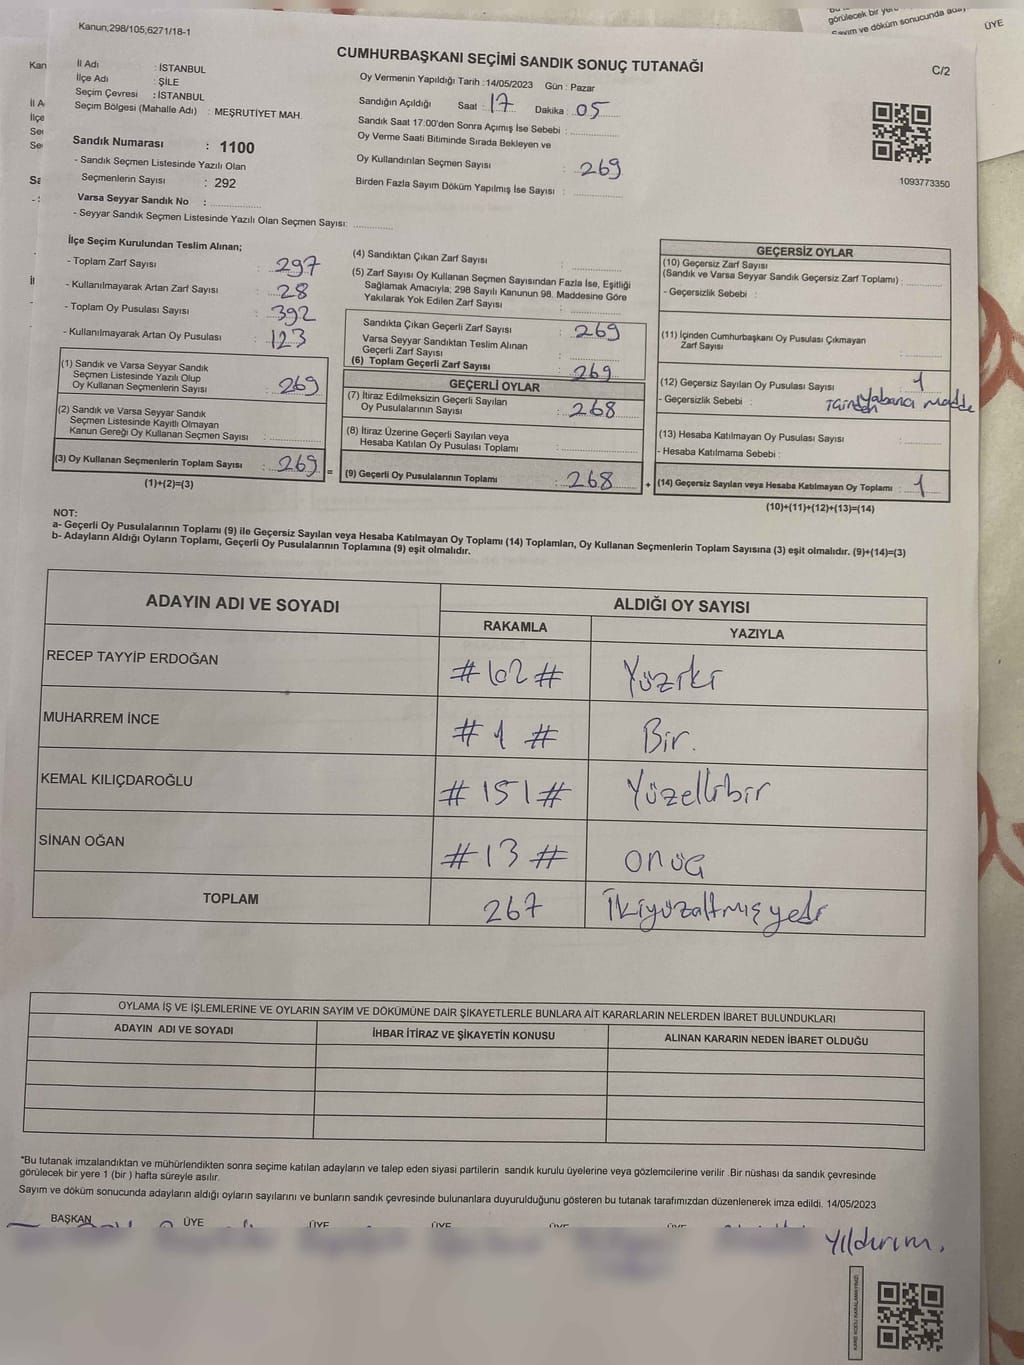 görülecek bir yere
Sayım ve döküm sonucunda
ÜYE
Kanun;298/105,6271/18-1
CUMHURBAŞKANI SEÇİMİ SANDIK SONUÇ TUTANAĞI
C/2
İl Adı : İSTANBUL
İlçe Adı : ŞİLE
Seçim Çevresi : İSTANBUL
Seçim Bölgesi (Mahalle Adı) : MEŞRUTİYET MAH.
Sandık Numarası : 1100
- Sandık Seçmen Listesinde Yazılı Olan
Seçmenlerin Sayısı : 292
Varsa Seyyar Sandık No :
- Seyyar Sandık Seçmen Listesinde Yazılı Olan Seçmen Sayısı:
Oy Vermenin Yapıldığı Tarih :14/05/2023 Gün : Pazar
Sandığın Açıldığı Saat : 17 Dakika : 05
Sandık Saat 17:00'den Sonra Açımış İse Sebebi :
Oy Verme Saati Bitiminde Sırada Bekleyen ve
Oy Kullandırılan Seçmen Sayısı : 269
Birden Fazla Sayım Döküm Yapılmış İse Sayısı :
1093773350
İlçe Seçim Kurulundan Teslim Alınan;
- Toplam Zarf Sayısı : 297
- Kullanılmayarak Artan Zarf Sayısı : 28
- Toplam Oy Pusulası Sayısı : 392
- Kullanılmayarak Artan Oy Pusulası : 123
(1) Sandık ve Varsa Seyyar Sandık
Seçmen Listesinde Yazılı Olup
Oy Kullanan Seçmenlerin Sayısı : 269
(2) Sandık ve Varsa Seyyar Sandık
Seçmen Listesinde Kayıtlı Olmayan
Kanun Gereği Oy Kullanan Seçmen Sayısı :
(3) Oy Kullanan Seçmenlerin Toplam Sayısı : 269 =
(1)+(2)=(3)
(4) Sandıktan Çıkan Zarf Sayısı :
(5) Zarf Sayısı Oy Kullanan Seçmen Sayısından Fazla İse, Eşitliği
Sağlamak Amacıyla; 298 Sayılı Kanunun 98. Maddesine Göre
Yakılarak Yok Edilen Zarf Sayısı :
Sandıkta Çıkan Geçerli Zarf Sayısı : 269
Varsa Seyyar Sandıktan Teslim Alınan
Geçerli Zarf Sayısı :
(6) Toplam Geçerli Zarf Sayısı : 269
GEÇERLİ OYLAR
(7) İtiraz Edilmeksizin Geçerli Sayılan
Oy Pusulalarının Sayısı : 268
(8) İtiraz Üzerine Geçerli Sayılan veya
Hesaba Katılan Oy Pusulası Toplamı :
(9) Geçerli Oy Pusulalarının Toplamı : 268 +
GEÇERSİZ OYLAR
(10) Geçersiz Zarf Sayısı
(Sandık ve Varsa Seyyar Sandık Geçersiz Zarf Toplamı) :
- Geçersizlik Sebebi :
(11) İçinden Cumhurbaşkanı Oy Pusulası Çıkmayan
Zarf Sayısı :
(12) Geçersiz Sayılan Oy Pusulası Sayısı : 1
- Geçersizlik Sebebi : Yabancı madde
(13) Hesaba Katılmayan Oy Pusulası Sayısı :
- Hesaba Katılmama Sebebi :
(14) Geçersiz Sayılan veya Hesaba Katılmayan Oy Toplamı : 1
(10)+(11)+(12)+(13)=(14)
NOT:
a- Geçerli Oy Pusulalarının Toplamı (9) ile Geçersiz Sayılan veya Hesaba Katılmayan Oy Toplamı (14) Toplamları, Oy Kullanan Seçmenlerin Toplam Sayısına (3) eşit olmalıdır. (9)+(14)=(3)
b- Adayların Aldığı Oyların Toplamı, Geçerli Oy Pusulalarının Toplamına (9) eşit olmalıdır.
ADAYIN ADI VE SOYADI
ALDIĞI OY SAYISI
RAKAMLA
YAZIYLA
RECEP TAYYİP ERDOĞAN #102# Yüziki
MUHARREM İNCE #1# Bir.
KEMAL KILIÇDAROĞLU #151# Yüzellibir
SİNAN OĞAN #13# onüç
TOPLAM 267 İkiyüzaltmışyedi
OYLAMA İŞ VE İŞLEMLERİNE VE OYLARIN SAYIM VE DÖKÜMÜNE DAİR ŞİKAYETLERLE BUNLARA AİT KARARLARIN NELERDEN İBARET BULUNDUKLARI
ADAYIN ADI VE SOYADI
İHBAR İTİRAZ VE ŞİKAYETİN KONUSU
ALINAN KARARIN NEDEN İBARET OLDUĞU
*Bu tutanak imzalandıktan ve mühürlendikten sonra seçime katılan adayların ve talep eden siyasi partilerin sandık kurulu üyelerine veya gözlemcilerine verilir .Bir nüshası da sandık çevresinde
görülecek bir yere 1 (bir ) hafta süreyle asılır.
Sayım ve döküm sonucunda adayların aldığı oyların sayılarını ve bunların sandık çevresinde bulunanlara duyurulduğunu gösteren bu tutanak tarafımızdan düzenlenerek imza edildi. 14/05/2023
BAŞKAN ÜYE ÜYE ÜYE ÜYE ÜYE
Yıldırım.